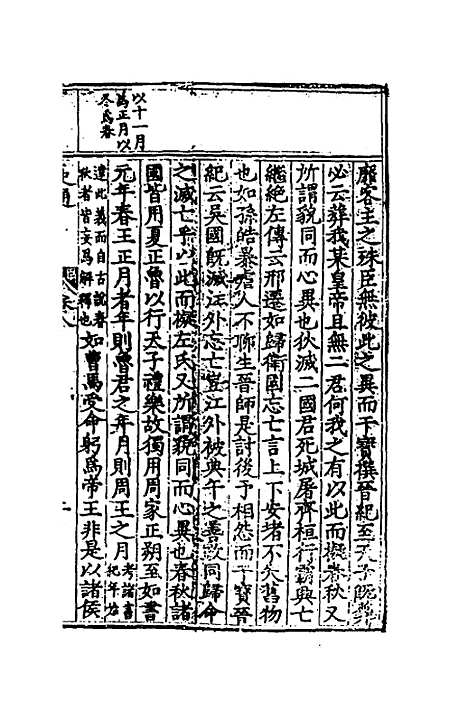 以十一月
為正月以
冬為春
廢客主之殊臣無彼此之異而干寶撰晉紀至天子
必云葬我某皇帝且無二君何我之有以此而擬春秋又
所謂貌同而心異也狄滅二國君死城屠齊桓行霸興亡
繼絕左傳云邢遷如歸衛國忘亡言上下安堵不失舊物
也如孫皓暴虐人不聊生晉師是討後予相怨而干寶晉
紀云吳國既滅江外忘亡豈江外被典午之善政同歸命
之滅亡乎以此而擬左氏又所謂貌同而心異也春秋諸
國皆用夏正魯以行天子禮樂故獨用周家正朔至如書
元年春王正月者年則魯君之年月則周王之月考諸書紀年始
達此義而自古說春秋者皆妄為解釋也如曹馬受命躬為帝王非是以諸侯